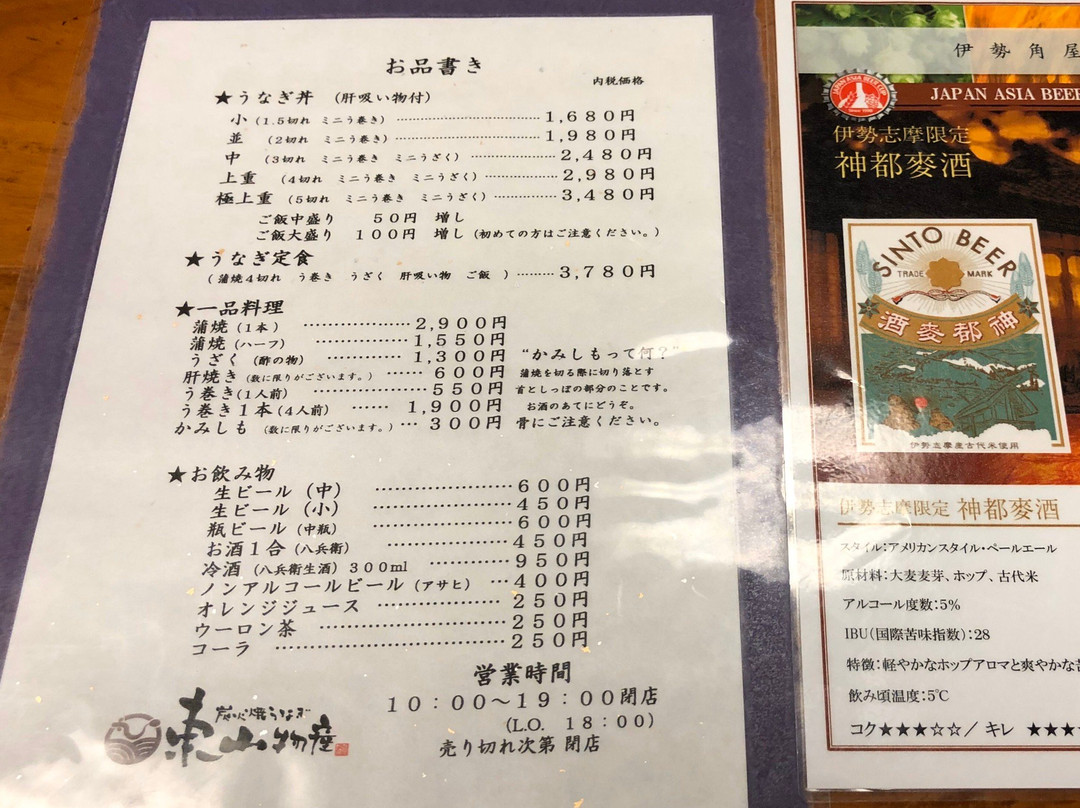 お品書き
内税価格
★うなぎ丼 (肝吸い物付)
小(1.5切れ ミニう巻き)……………………1,680円
並 (2切れ ミニう巻き)……………………1,980円
中 (3切れ ミニう巻き ミニうざく)……………2,480円
上重 (4切れ ミニう巻き ミニうざく)…………2,980円
極上重 (5切れ ミニう巻き ミニうざく)………3,480円
ご飯中盛り 50円 増し
ご飯大盛り 100円 増し(初めての方はご注意ください。)
★うなぎ定食
(蒲焼4切れ う巻き うざく 肝吸い物 ご飯 )………3,780円
★一品料理
蒲焼(1本) ………………2,900円
蒲焼(ハーフ) ……………1,550円
うざく(酢の物) …………1,300円
肝焼き(数に限りがございます。)……600円
う巻き(1人前) ……………550円
う巻き1本(4人前) ……1,900円
かみしも(数に限りがございます。)…300円
“かみしもって何?”
蒲焼を切る際に切り落とす
首としっぽの部分のことです。
お酒のあてにどうぞ。
骨にご注意ください。
★お飲み物
生ビール(中) …………………600円
生ビール(小) …………………450円
瓶ビール(中瓶) …………………600円
お酒1合(八兵衛) ………………450円
冷酒(八兵衛生酒)300ml ……………950円
ノンアルコールビール(アサヒ) …400円
オレンジジュース ………………250円
ウーロン茶 ………………………250円
コーラ ……………………………250円
営業時間
10:00～19:00閉店
(L.O. 18:00)
売り切れ次第 閉店
炭火焼うなぎ
東山物産
伊勢角屋
JAPAN ASIA BEER CUP
JAPAN ASIA BEER
伊勢志摩限定
神都麥酒
SINTO BEER
TRADE MARK
酒麥都神
伊勢志摩産古代米使用
伊勢志摩限定 神都麥酒
スタイル:アメリカンスタイル・ペールエール
原材料:大麦麦芽、ホップ、古代米
アルコール度数:5%
IBU(国際苦味指数):28
特徴:軽やかなホップアロマと爽やかな
飲み頃温度:5℃
コク★★★☆☆/ キレ ★★★